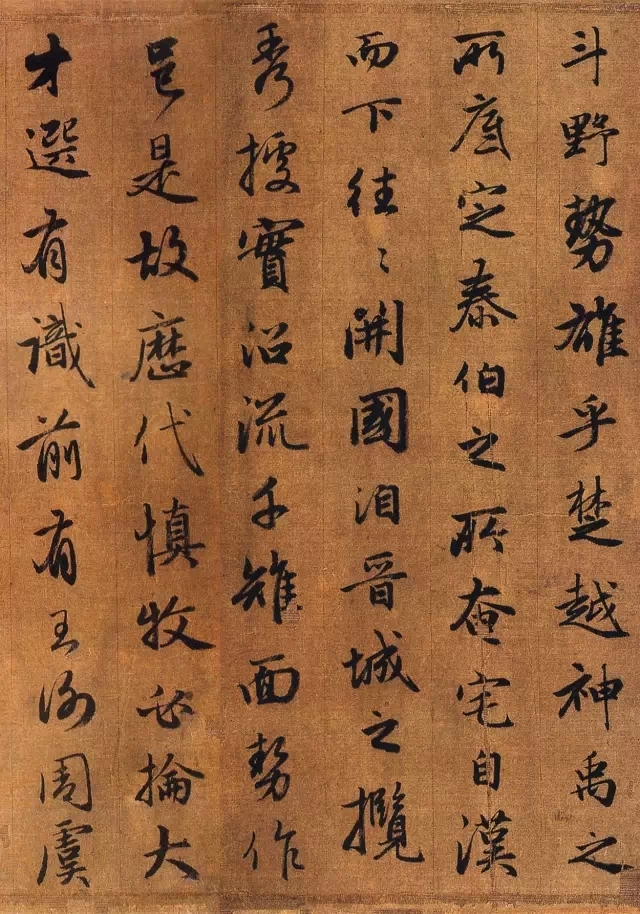 斗野勢雄乎楚越神禹之
所底定泰伯之所奄宅自漢
而下往〻開國洎晋城之攬
秀據實沿流千雉面勢作
邑是故歷代慎牧必掄大
才選有識前有王謝周虞